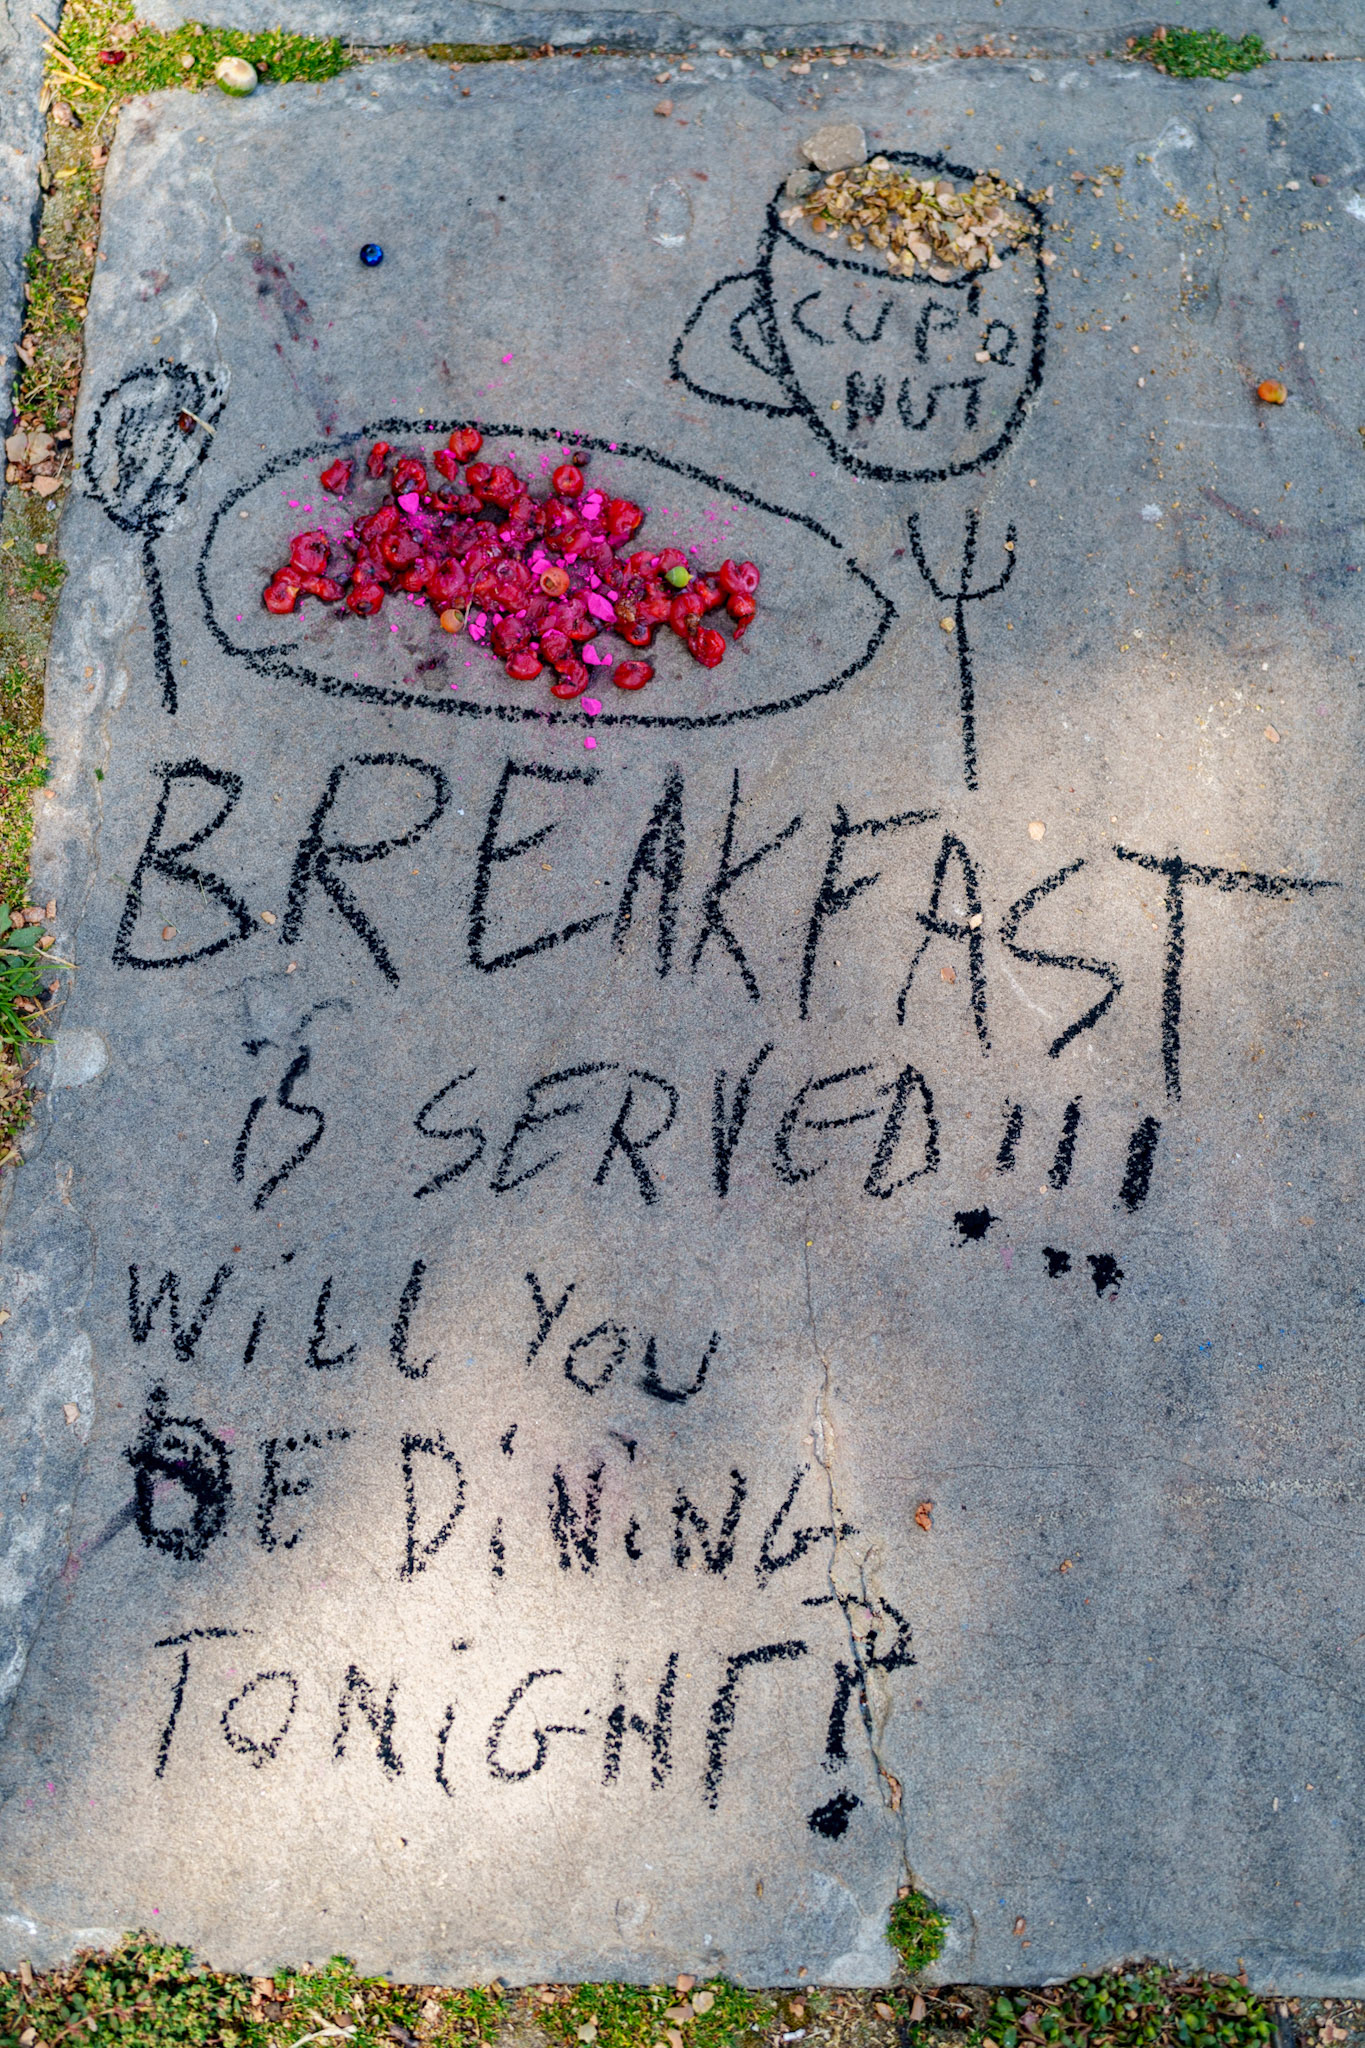 CUP'Q
NUT
BREAKFAST
iS SERVED!!!
WiLL YOU
BE DiNiNG
TONiGHT?